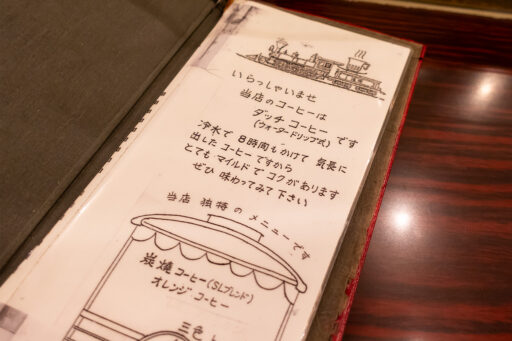 いらっしゃいませ
当店のコーヒーは
ダッチ コーヒー です
(ウォータードリップ式)
冷水で 8時間もかけて 気長に
出した コーヒーですから
とても マイルドで コクがあります
ぜひ 味わってみて下さい
当店 独特の メニューです
炭焼コーヒー(SLブレンド)
オレンジ・コーヒー
三色